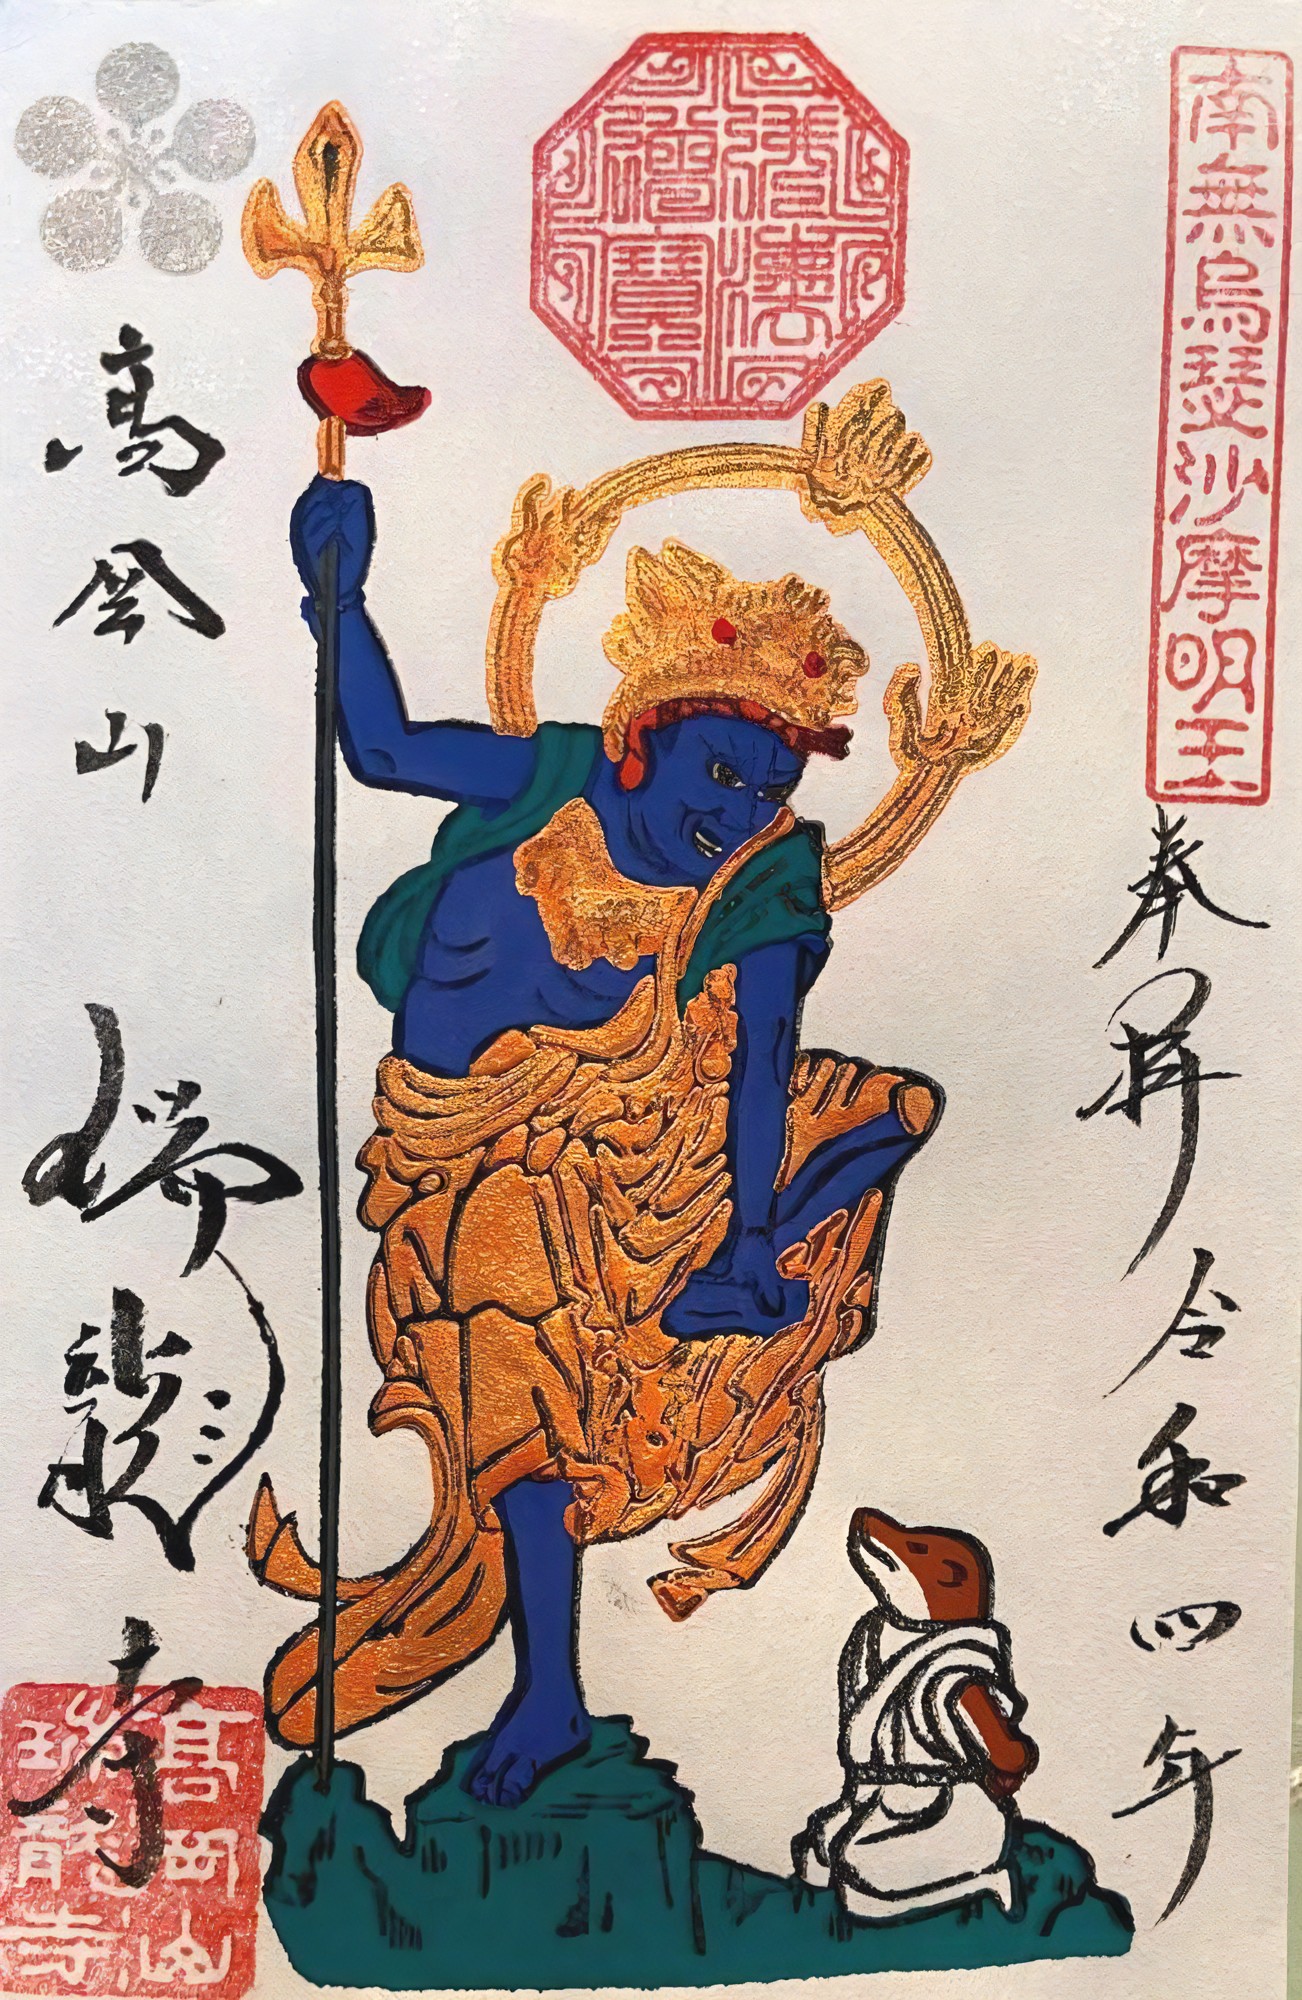 南無烏瑟沙摩明王
奉拝 令和四年
佛法僧寶
高岡山
瑞龍寺
高岡山
瑞龍寺